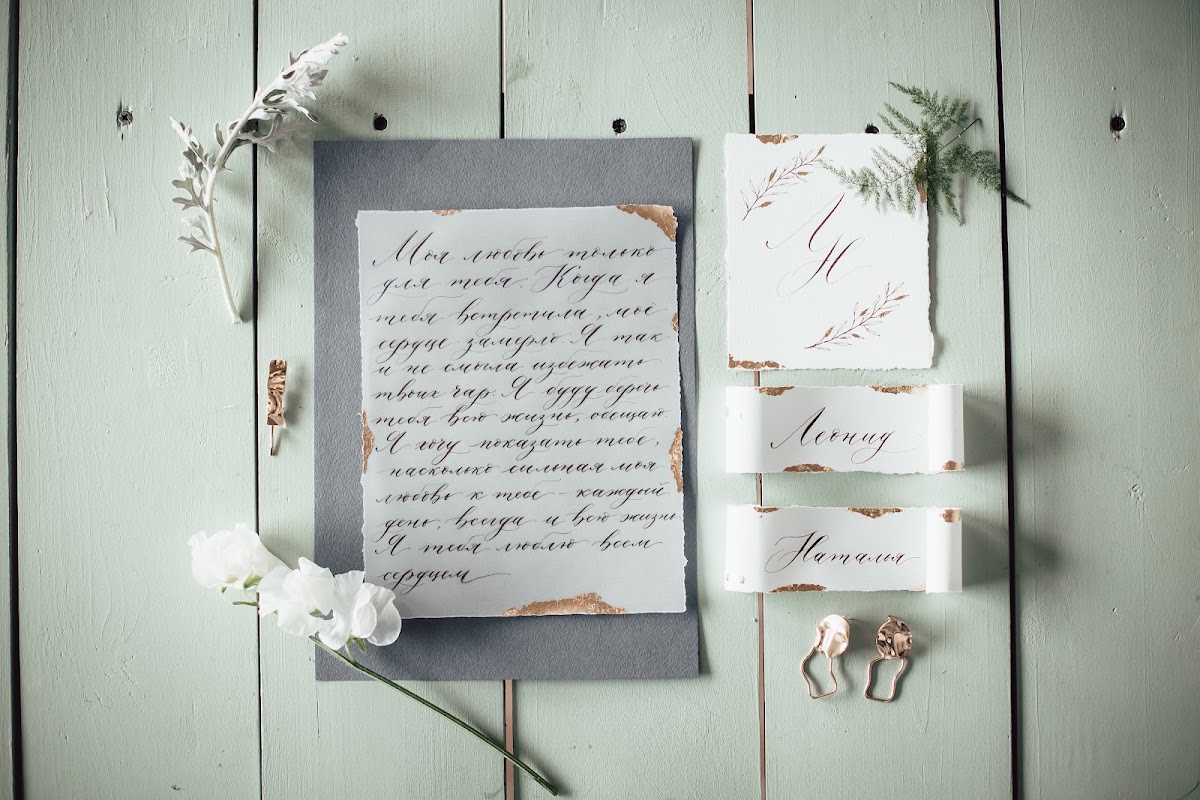 Моя любовь только
для тебя. Когда я
тебя встретила, моё
сердце замерло. Я так
и не смогла избежать
твоих чар. Я буду беречь
тебя всю жизнь, обещаю
Я хочу показать тебе,
насколько сильная моя
любовь к тебе - каждый
день, всегда и всю жизнь
Я тебя люблю всем
сердцем
Л
Н
Леонид
Наталья